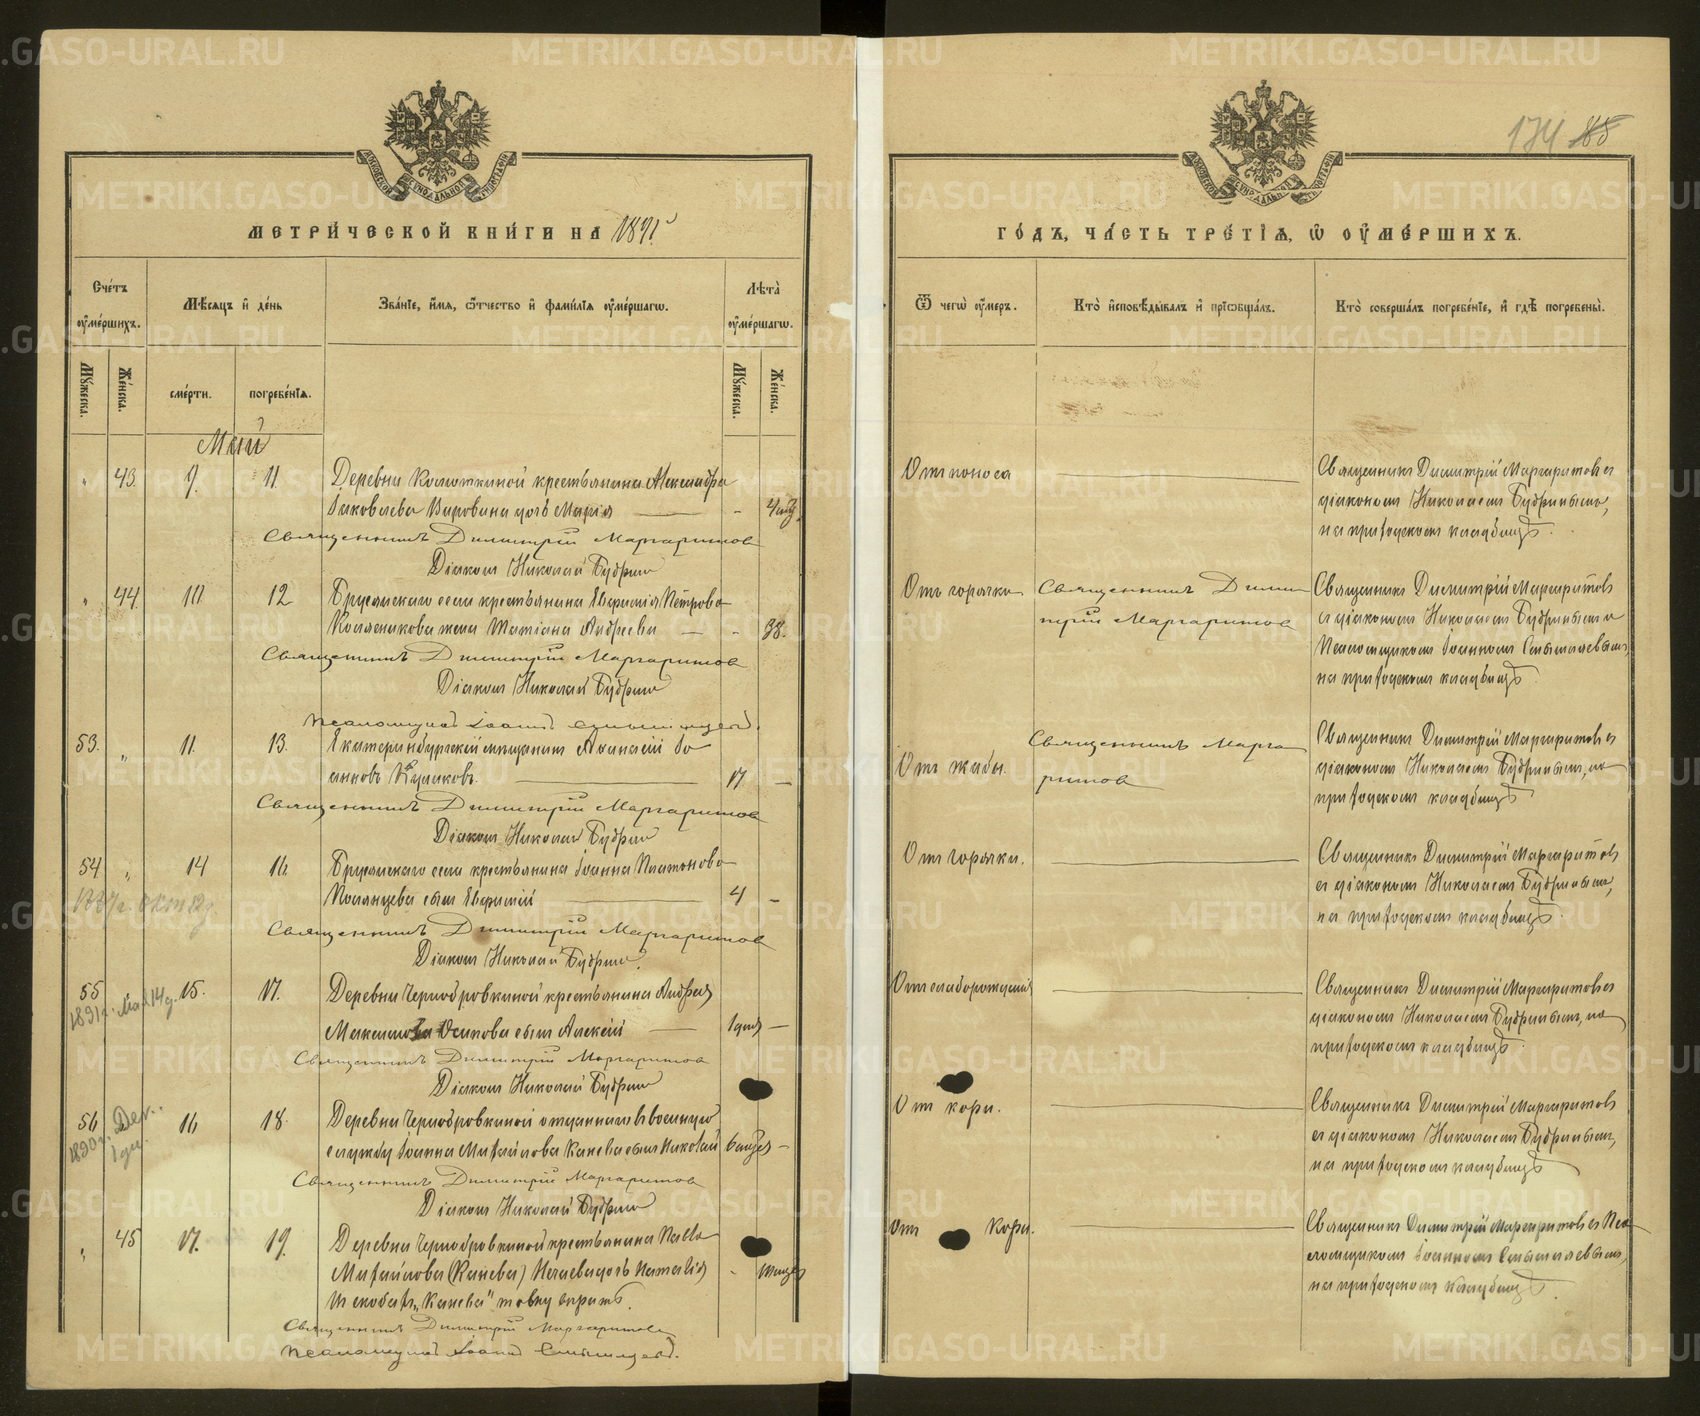 МЕТРИ́ЧЕСКОЙ КНИ́ГИ НА 1891й
Сче́тъ ᲂу҆ме́ршихъ.
Мѣ́сяцъ и҆ де́нь
Зва́нїе, и҆́мѧ, ѻ҆́тчество и҆ фами́лїѧ ᲂу҆ме́ршагѡ.
Лѣ́та ᲂу҆ме́ршагѡ.
Мꙋ́жеска.
Же́нска.
сме́рти.
погребе́нїѧ.
Мꙋ́жеска.
Же́нска.
Май
„ 43. 9. 11. Деревни крестьянина Александра
Іаковлева дочь Марія - 4
Священникъ Димитрій Маргаритовъ
Діаконъ Николай Будринъ
„ 44. 10 12 Брусянскаго села крестьянина Евфимія Петрова
жена Татіана Андреева - 38.
Священникъ Димитрій Маргаритовъ
Діаконъ Николай Будринъ
Псаломщикъ Іоаннъ
53. „ 11. 13. Екатеринбургскій мѣщанинъ Аѳанасій Іо
анновъ Кулаковъ. 17. -
Священникъ Димитрій Маргаритовъ
Діаконъ Николай Будринъ
54 „ 14 16. Брусянскаго села крестьянина Іоанна Платонова
сынъ Евфимій 4 -
1887г. Окт 12д.
Священникъ Димитрій Маргаритовъ
Діаконъ Николай Будринъ.
55 15. 17. Деревни Чернобровкиной крестьянина Андрея
1891г. Мая 14д.
Максимова Осипова сынъ Алексій 1 дня -
Священникъ Димитрій Маргаритовъ
Діаконъ Николай Будринъ
56 16 18. Деревни Чернобровкиной отданнаго въ военную
1890г. Дек. 1 дн.
службу Іоанна Михайлова Канева сынъ Николай 6 мцев -
Священникъ Димитрій Маргаритовъ
Діаконъ Николай Будринъ
„ 45 17. 19. Деревни Чернобровкиной крестьянина Павла
Михайлова (Канева) Нечаева дочь Наталія -
Въ скобахъ „Канева"
Священникъ Димитрій Маргаритовъ
Псаломщикъ Іоаннъ
174 165
ГО́ДЪ, ЧА́СТЬ ТРЕ́ТЇѦ, Ѡ҆ ОУ҆МЕ́РШИХЪ.
Ѿ чегѡ̀ ᲂу҆́меръ.
Кто̀ и҆сповѣ́дывалъ и҆ прїѡбща́лъ.
Кто̀ соверша́лъ погребе́нїе, и҆ гдѣ̀ погребены̀.
Отъ поноса
Священникъ Димитрій Маргаритовъ съ
діакономъ Николаемъ Будринымъ,
на приходскомъ кладбищѣ.
Отъ горячки
Священникъ Дими
трій Маргаритовъ
Священникъ Димитрій Маргаритовъ
съ діакономъ Николаемъ Будринымъ и
Псаломщикомъ Іоанномъ
на приходскомъ кладбищѣ.
Отъ жабы.
Священникъ Марга
ритовъ
Священникъ Димитрій Маргаритовъ съ
діакономъ Николаемъ Будринымъ, на
приходскомъ кладбищѣ
Отъ горячки.
Священникъ Димитрій Маргаритовъ
съ діакономъ Николаемъ Будринымъ,
на приходскомъ кладбищѣ.
Отъ слаборожденія
Священникъ Димитрій Маргаритовъ съ
діакономъ Николаемъ Будринымъ, на
приходскомъ кладбищѣ.
Отъ кори.
Священникъ Димитрій Маргаритовъ
съ діакономъ Николаемъ Будринымъ,
на приходскомъ кладбищѣ
Отъ кори.
Священникъ Димитрій Маргаритовъ съ Пса
ломщикомъ Іоанномъ
на приходскомъ кладбищѣ.
METRIKI.GASO-URAL.RU